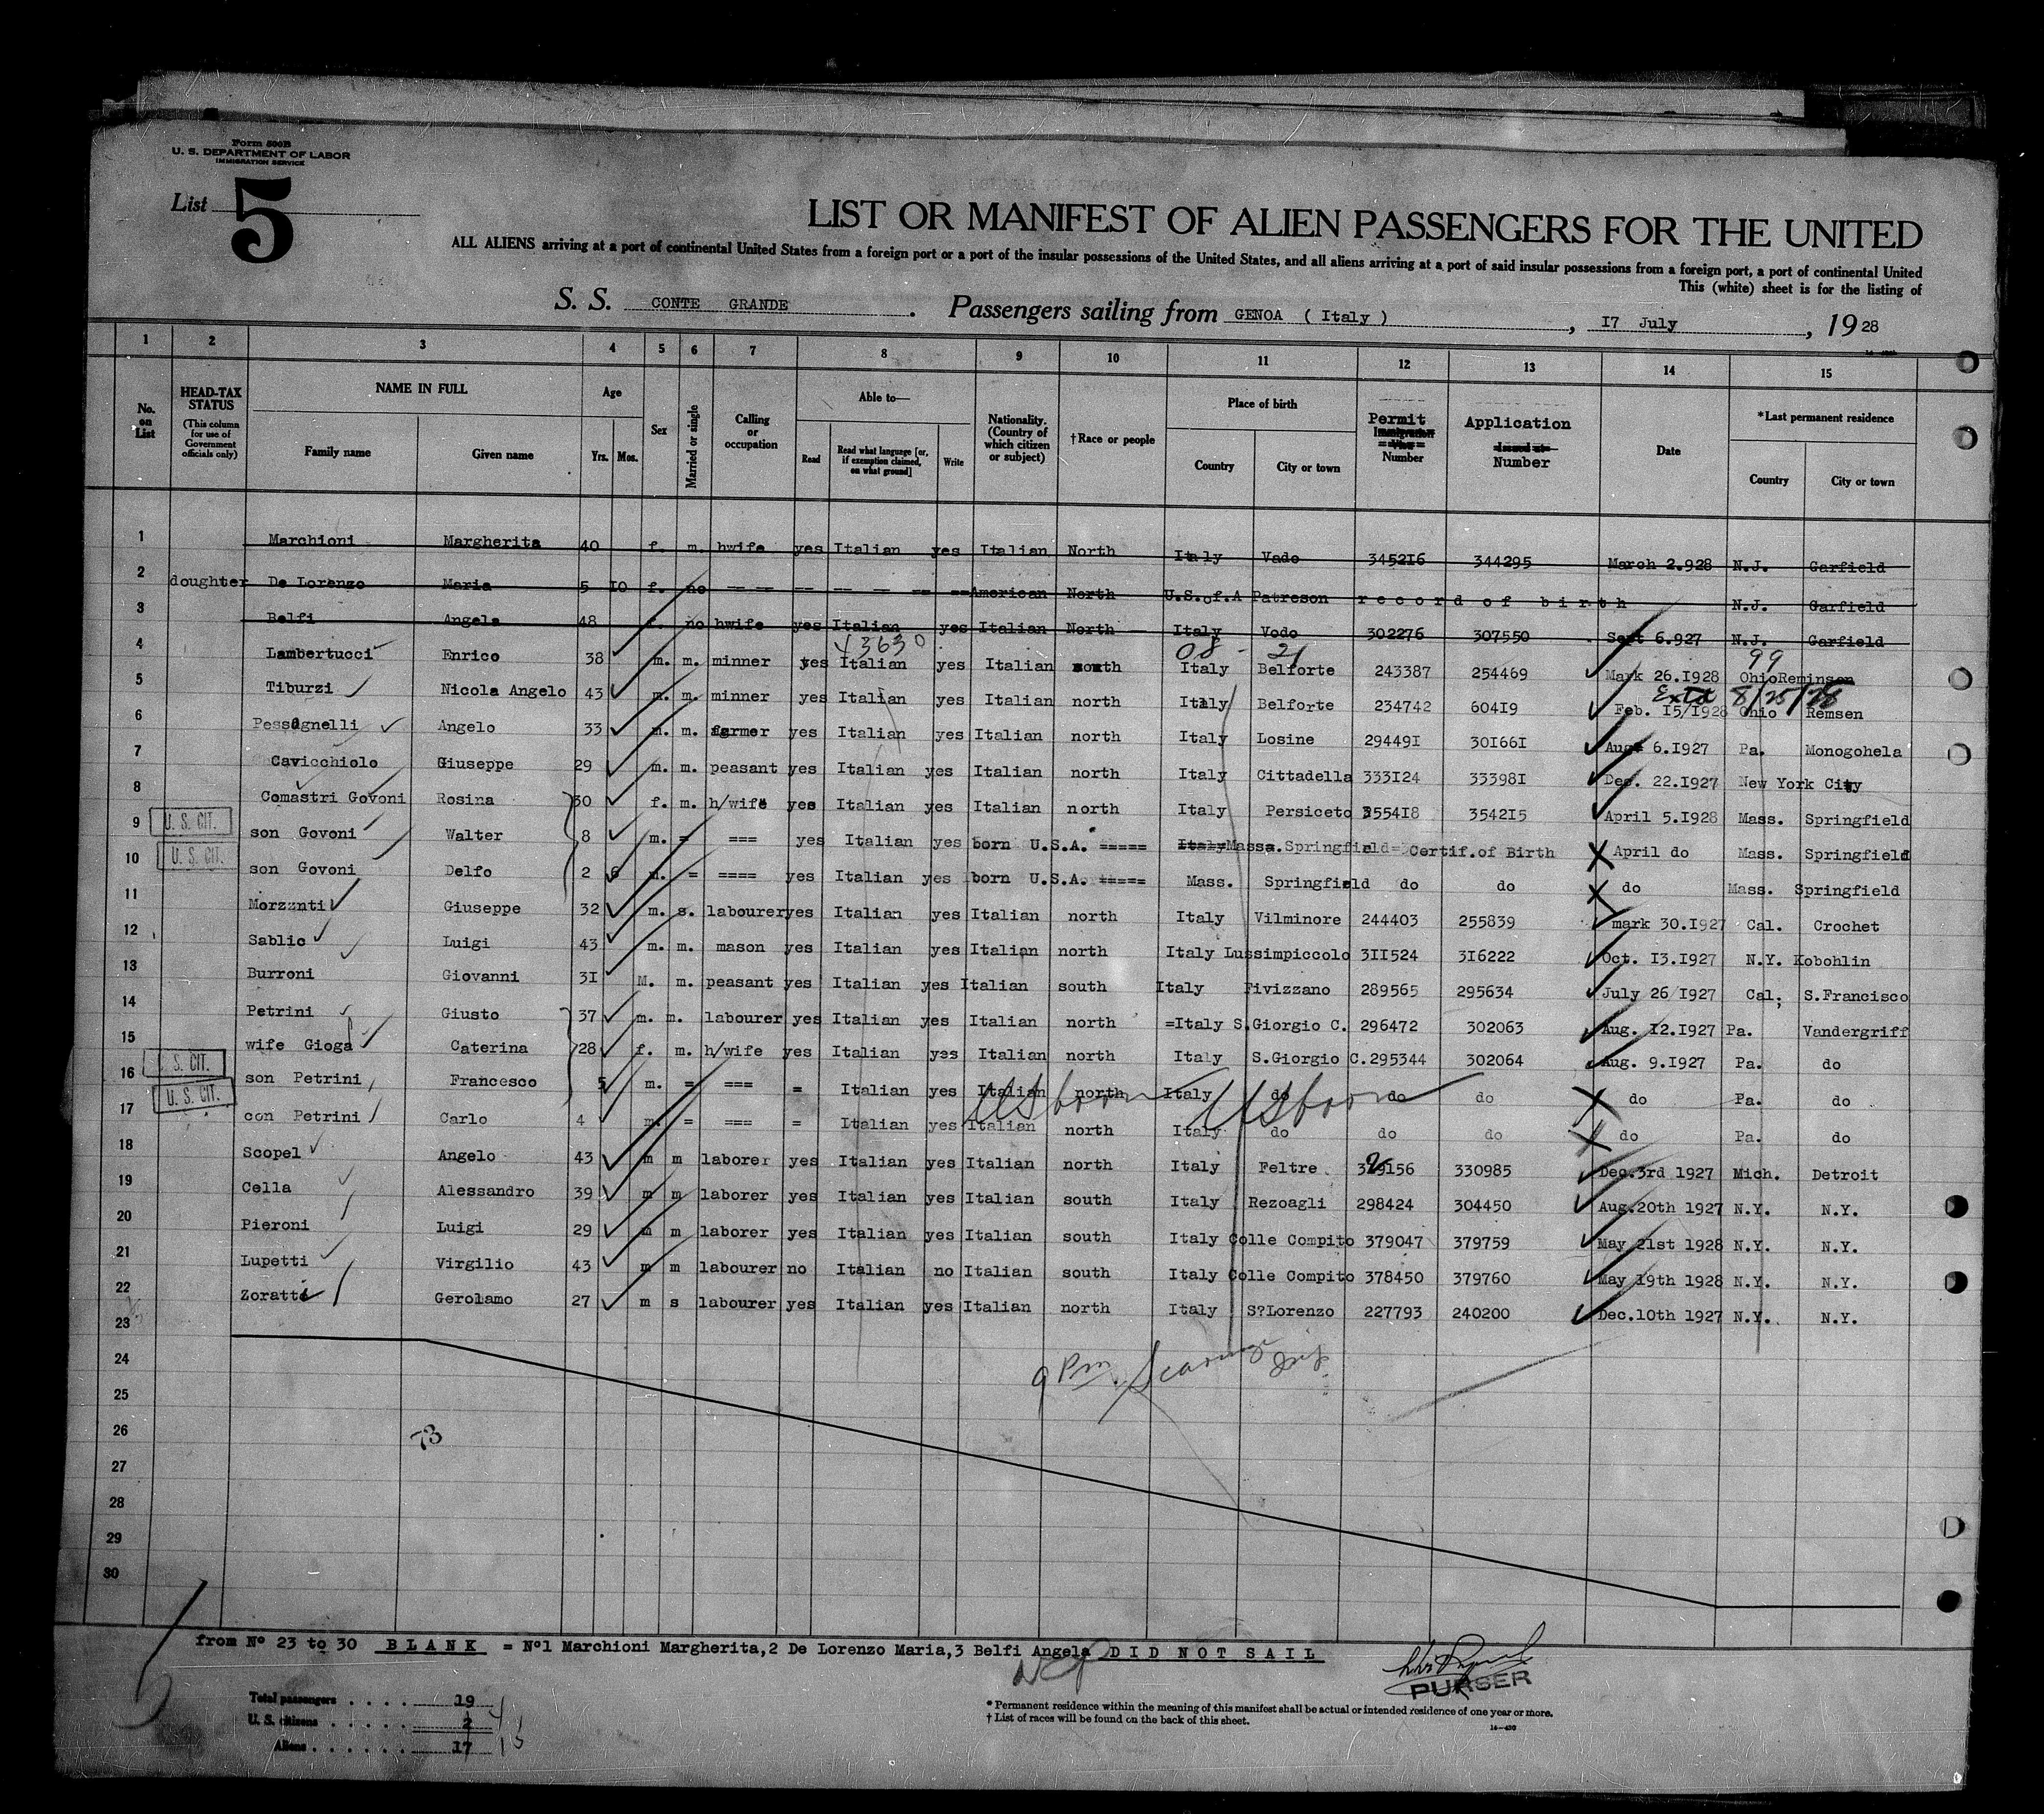 Form 500B
U. S. DEPARTMENT OF LABOR
IMMIGRATION SERVICE
List 5
LIST OR MANIFEST OF ALIEN PASSENGERS FOR THE UNITED
ALL ALIENS arriving at a port of continental United States from a foreign port or a port of the insular possessions of the United States, and all aliens arriving at a port of said insular possessions from a foreign port, a port of continental United
This (white) sheet is for the listing of
S. S. CONTE GRANDE . Passengers sailing from GENOA ( Italy ) , I7 July , 19 28
1 2 3 4 5 6 7 8 9 10 11 12 13 14 15
No. on List HEAD-TAX STATUS (This column for use of Government officials only) NAME IN FULL Family name Given name Age Yrs. Mos. Sex Married or single Calling or occupation Able to— Read Read what language [or, if exemption claimed, on what ground] Write Nationality. (Country of which citizen or subject) † Race or people Place of birth Country City or town Permit Immigration Visa Number Application Issued at Number Date *Last permanent residence Country City or town
1 Marchioni Margherita 40 f. m. hwife yes Italian yes Italian North Italy Vado 3452I6 344295 March 2.928 N.J. Garfield
2 doughter De Lorenzo Maria 5 IO f. no -- -- -- -- -- -- -- American North U.S.of.A Patreson record of birth N.J. Garfield
3 Belfi Angela 48 f. no hwife yes Italian yes Italian North Italy Vodo 302276 307550 Sept 6.927 N.J. Garfield
43630 08 - 21 99
4 Lambertucci Enrico 38 m. m. minner yes Italian yes Italian north Italy Belforte 243387 254469 Mark 26.I928 Ohio Reminsen
Extd 8/25/28
5 Tiburzi Nicola Angelo 43 m. m. minner yes Italian yes Italian north Italy Belforte 234742 604I9 Feb. I5/I928 Ohio Remsen
6 Pessagnelli Angelo 33 m. m. farmer yes Italian yes Italian north Italy Losine 29449I 30I66I Aug. 6.I927 Pa. Monogohela
7 Cavicchiolo Giuseppe 29 m. m. peasant yes Italian yes Italian north Italy Cittadella 333I24 33398I Dec. 22.I927 New York City
8 Comastri Govoni Rosina 30 f. m. h/wife yes Italian yes Italian north Italy Persiceto 3554I8 3542I5 April 5.I928 Mass. Springfield
9 U. S. CIT. son Govoni Walter 8 m. = === yes Italian yes born U.S.A. ===== Italy Massa. Springfield= Certif.of Birth April do Mass. Springfield
10 U. S. CIT. son Govoni Delfo 2 6 m. = ==== yes Italian yes born U.S.A. ===== Mass. Springfield do do do Mass. Springfield
11 Morzznti Giuseppe 32 m. s. labourer yes Italian yes Italian north Italy Vilminore 244403 255839 mark 30.I927 Cal. Crochet
12 Sablic Luigi 43 m. m. mason yes Italian yes Italian north Italy Lussimpiccolo 3II524 3I6222 Oct. I3.I927 N.Y. Kobohlin
13 Burroni Giovanni 3I M. m. peasant yes Italian yes Italian south Italy Fivizzano 289565 295634 July 26 I927 Cal; S.Francisco
14 Petrini Giusto 37 m. m. labourer yes Italian yes Italian north =Italy S.Giorgio C. 296472 302063 Aug. I2.I927 Pa. Vandergriff
15 wife Gioga Caterina 28 f. m. h/wife yes Italian yes Italian north Italy S.Giorgio C. 295344 302064 Aug. 9.I927 Pa. do
16 U. S. CIT. son Petrini Francesco 5 m. = === = Italian yes Italian north Italy do do do do Pa. do
US born US born
17 U. S. CIT. con Petrini Carlo 4 m. = === = Italian yes Italian north Italy do do do do Pa. do
18 Scopel Angelo 43 m m laborer yes Italian yes Italian north Italy Feltre 329156 330985 Dec.3rd 1927 Mich. Detroit
19 Cella Alessandro 39 m m laborer yes Italian yes Italian south Italy Rezoagli 298424 304450 Aug.20th 1927 N.Y. N.Y.
20 Pieroni Luigi 29 m m laborer yes Italian yes Italian south Italy Colle Compito 379047 379759 May 21st 1928 N.Y. N.Y.
21 Lupetti Virgilio 43 m m labourer no Italian no Italian south Italy Colle Compito 378450 379760 May 19th 1928 N.Y. N.Y.
22 Zoratti Gerolamo 27 m s labourer yes Italian yes Italian north Italy S?Lorenzo 227793 240200 Dec.10th 1927 N.Y. N.Y.
23
24
9 Pm
25
26
73
27
28
29
30
from Nº 23 to 30 BLANK = Nº1 Marchioni Margherita,2 De Lorenzo Maria,3 Belfi Angela DID NOT SAIL
PURSER
Total passengers . . . . 19
U. S. citizens . . . . . 2 4
Aliens . . . . . . 17 15
* Permanent residence within the meaning of this manifest shall be actual or intended residence of one year or more.
† List of races will be found on the back of this sheet.
16—430